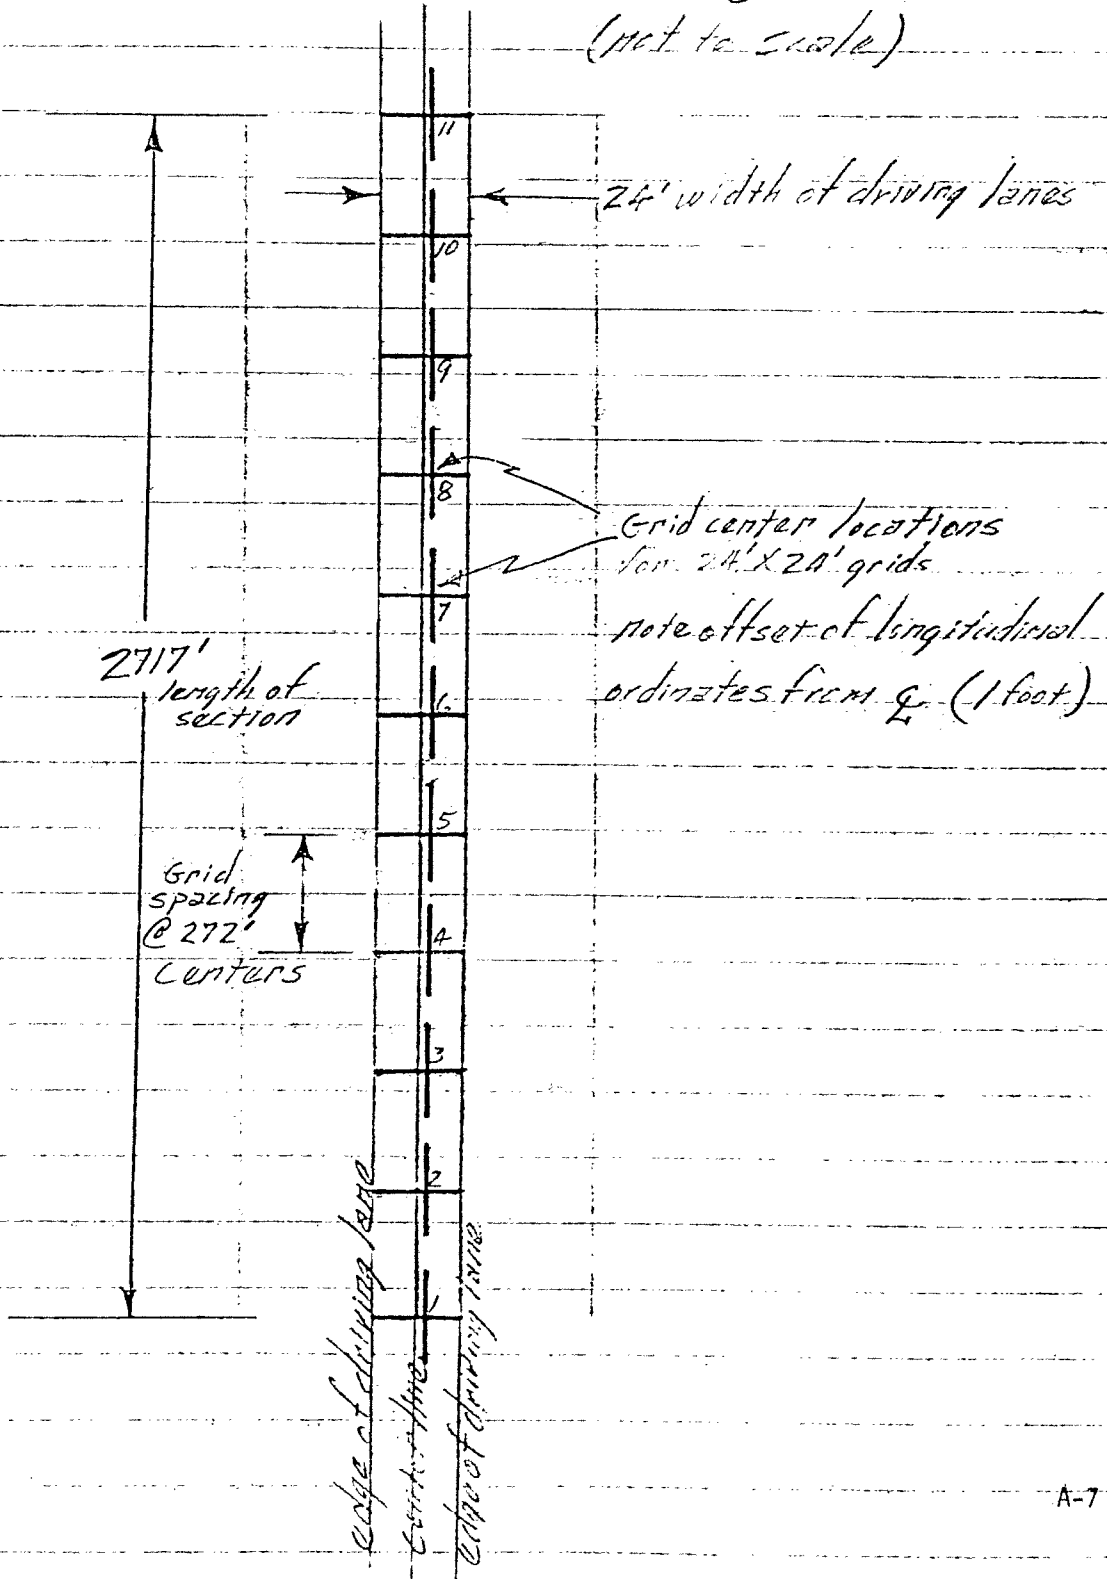 (not to scale)
11
24' width of driving lanes
10
9
8
Grid center locations
for 24' X 24' grids
7
note offset of longitudinal
2717'
length of
section
ordinates from ℄ (1 foot)
6
5
Grid
spacing
@ 272'
Centers
4
3
2
1
edge of driving lane
centerline
edge of driving lane
A-7